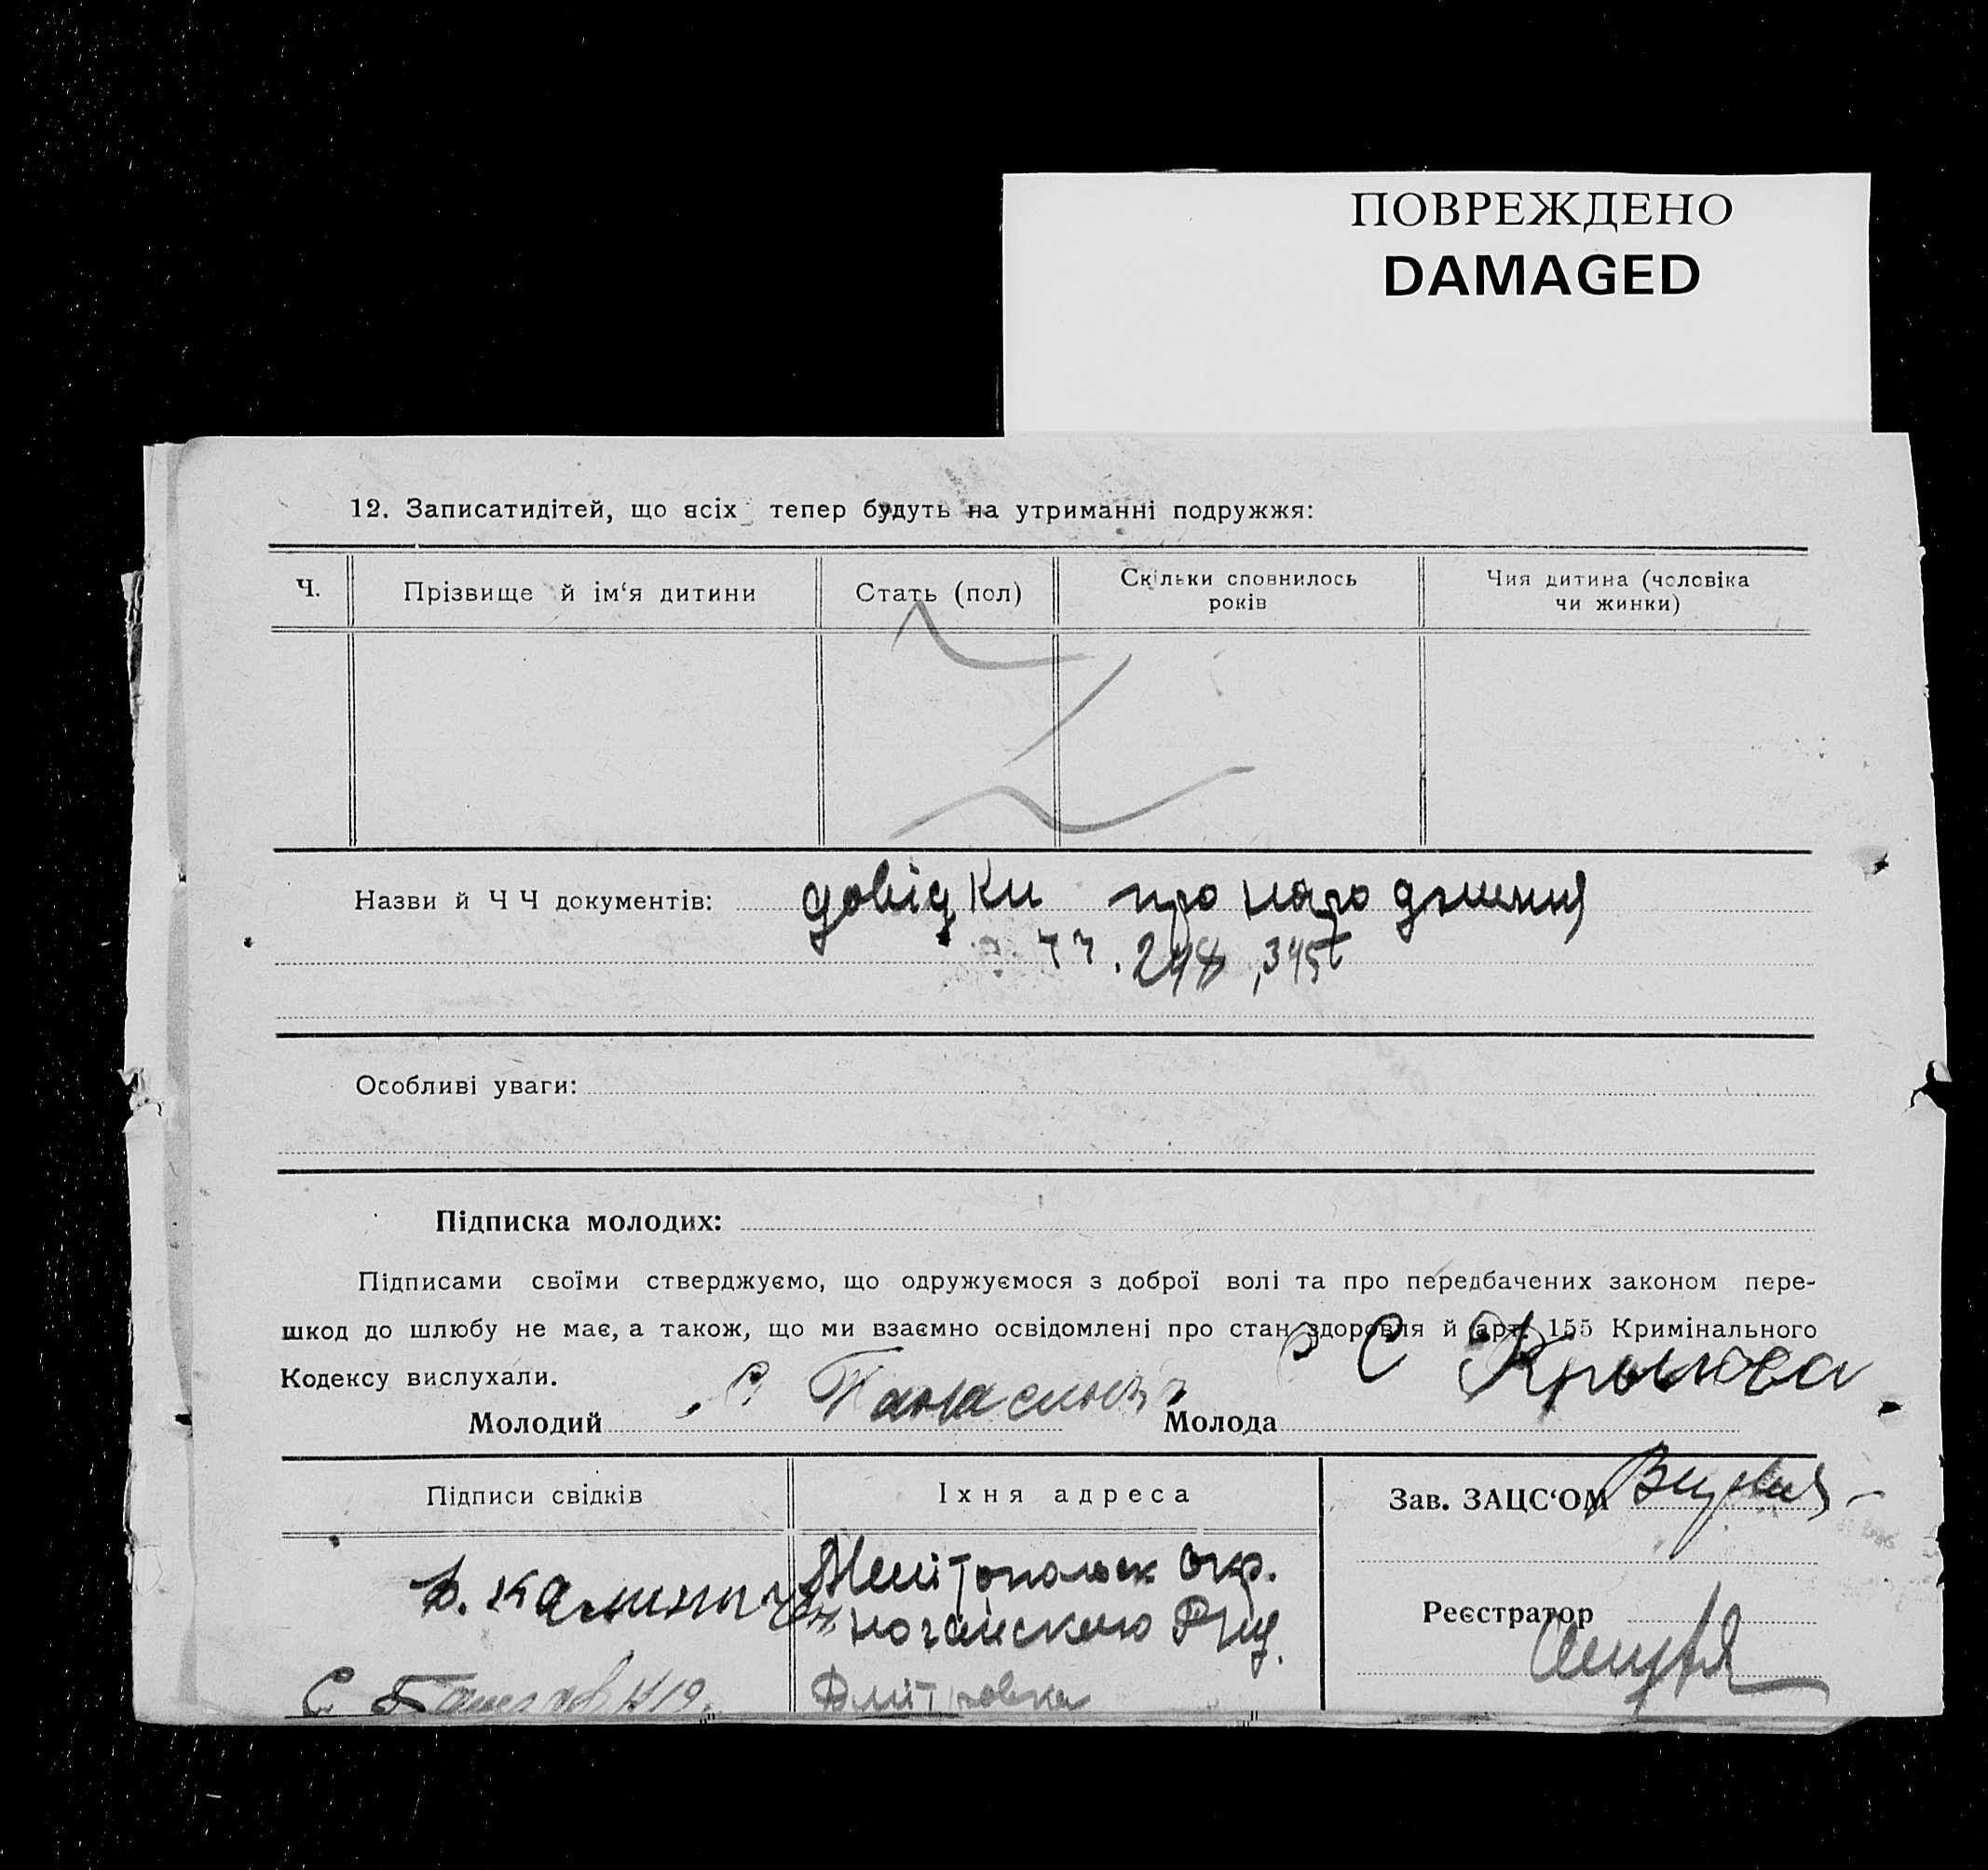 ПОВРЕЖДЕНО
DAMAGED
12. Записатидітей, що всіх тепер будуть на утриманні подружжя:
Ч.
Прізвище й ім‘я дитини
Стать (пол)
Скільки сповнилось
років
Чия дитина (чоловіка
чи жинки)
Назви й Ч Ч документів: довідки про народження
чч. 248, 345
Особливі уваги:
Підписка молодих:
Підписами своїми стверджуємо, що одружуємося з доброї волі та про передбачених законом пере-
шкод до шлюбу не має, а також, що ми взаємно освідомлені про стан здоровля й арт. 155 Кримінального
Кодексу вислухали.
Молодий
Молода С Крылова
Підписи свідків
Їхня адреса
Зав. ЗАЦС‘ОМ
Мелітопольск Окр.
Ногайського
Реєстратор
Дмітровка